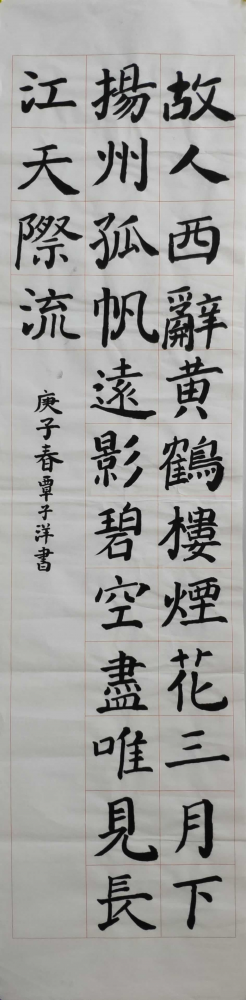 故人西辭黄鶴樓煙花三月下
揚州孤帆遠影碧空盡唯見長
江天際流
庚子春覃子洋書